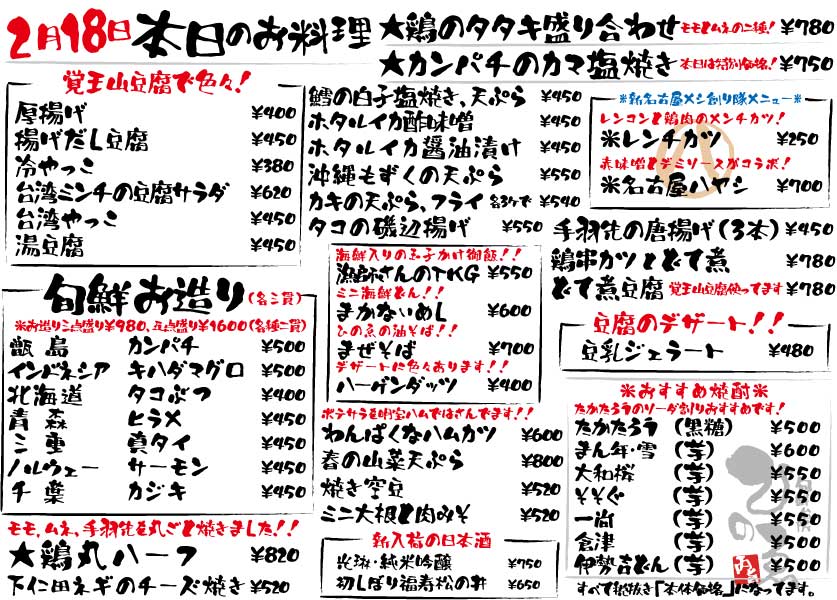 2月18日 本日のお料理
★鶏のタタキ盛り合わせ モモとムネの二種! ¥780
★カンパチのカマ塩焼き 本日は特別価格! ¥750
覚王山豆腐で色々!
厚揚げ ¥400
揚げだし豆腐 ¥450
冷やっこ ¥380
台湾ミンチの豆腐サラダ ¥620
台湾やっこ ¥450
湯豆腐 ¥450
旬鮮お造り(各二貫)
※お造り三点盛り¥980、五点盛り¥1600(各種二貫)
甑島 カンパチ ¥500
インドネシア キハダマグロ ¥500
北海道 タコぶつ ¥400
青森 ヒラメ ¥450
三重 真タイ ¥450
ノルウェー サーモン ¥450
千葉 カジキ ¥450
モモ、ムネ、手羽先を丸ごと焼きました!!
★鶏丸ハーフ ¥820
下仁田ネギのチーズ焼き ¥520
鱈の白子塩焼き、天ぷら ¥450
ホタルイカ酢味噌 ¥450
ホタルイカ醤油漬け ¥450
沖縄もずくの天ぷら ¥550
カキの天ぷら、フライ 各3ケで ¥540
タコの磯辺揚げ ¥550
海鮮入りの玉子かけ御飯!!
漁師さんのTKG ¥550
ミニ海鮮どん!!
まかないめし ¥600
ひの魚の油そば!!
まぜそば ¥700
デザートに色々あります!!
ハーゲンダッツ ¥400
ポテサラを明宝ハムではさんでます!!
わんぱくなハムカツ ¥600
春の山菜天ぷら ¥800
焼き空豆 ¥520
ミニ大根と肉みそ ¥520
新入荷の日本酒
純米吟醸 ¥750
初しぼり福寿松の井 ¥650
※新名古屋メシ創り隊メニュー※
レンコンと鶏肉のメンチカツ!
※レンチカツ ¥250
赤味噌とデミソースがコラボ!
※名古屋ハヤシ ¥700
手羽先の唐揚げ(3本) ¥450
鶏串カツとどて煮 ¥780
どて煮豆腐 覚王山豆腐使ってます ¥780
豆腐のデザート!!
豆乳ジェラート ¥480
※おすすめ焼酎※
たかたろうのソーダ割りおすすめです!
たかたろう (黒糖) ¥500
まん年・雪 (芋) ¥600
大和桜 (芋) ¥550
そそぐ (芋) ¥550
一尚 (芋) ¥550
倉津 (芋) ¥500
伊勢吉どん (芋) ¥550
すべて税抜き「本体価格」になってます。